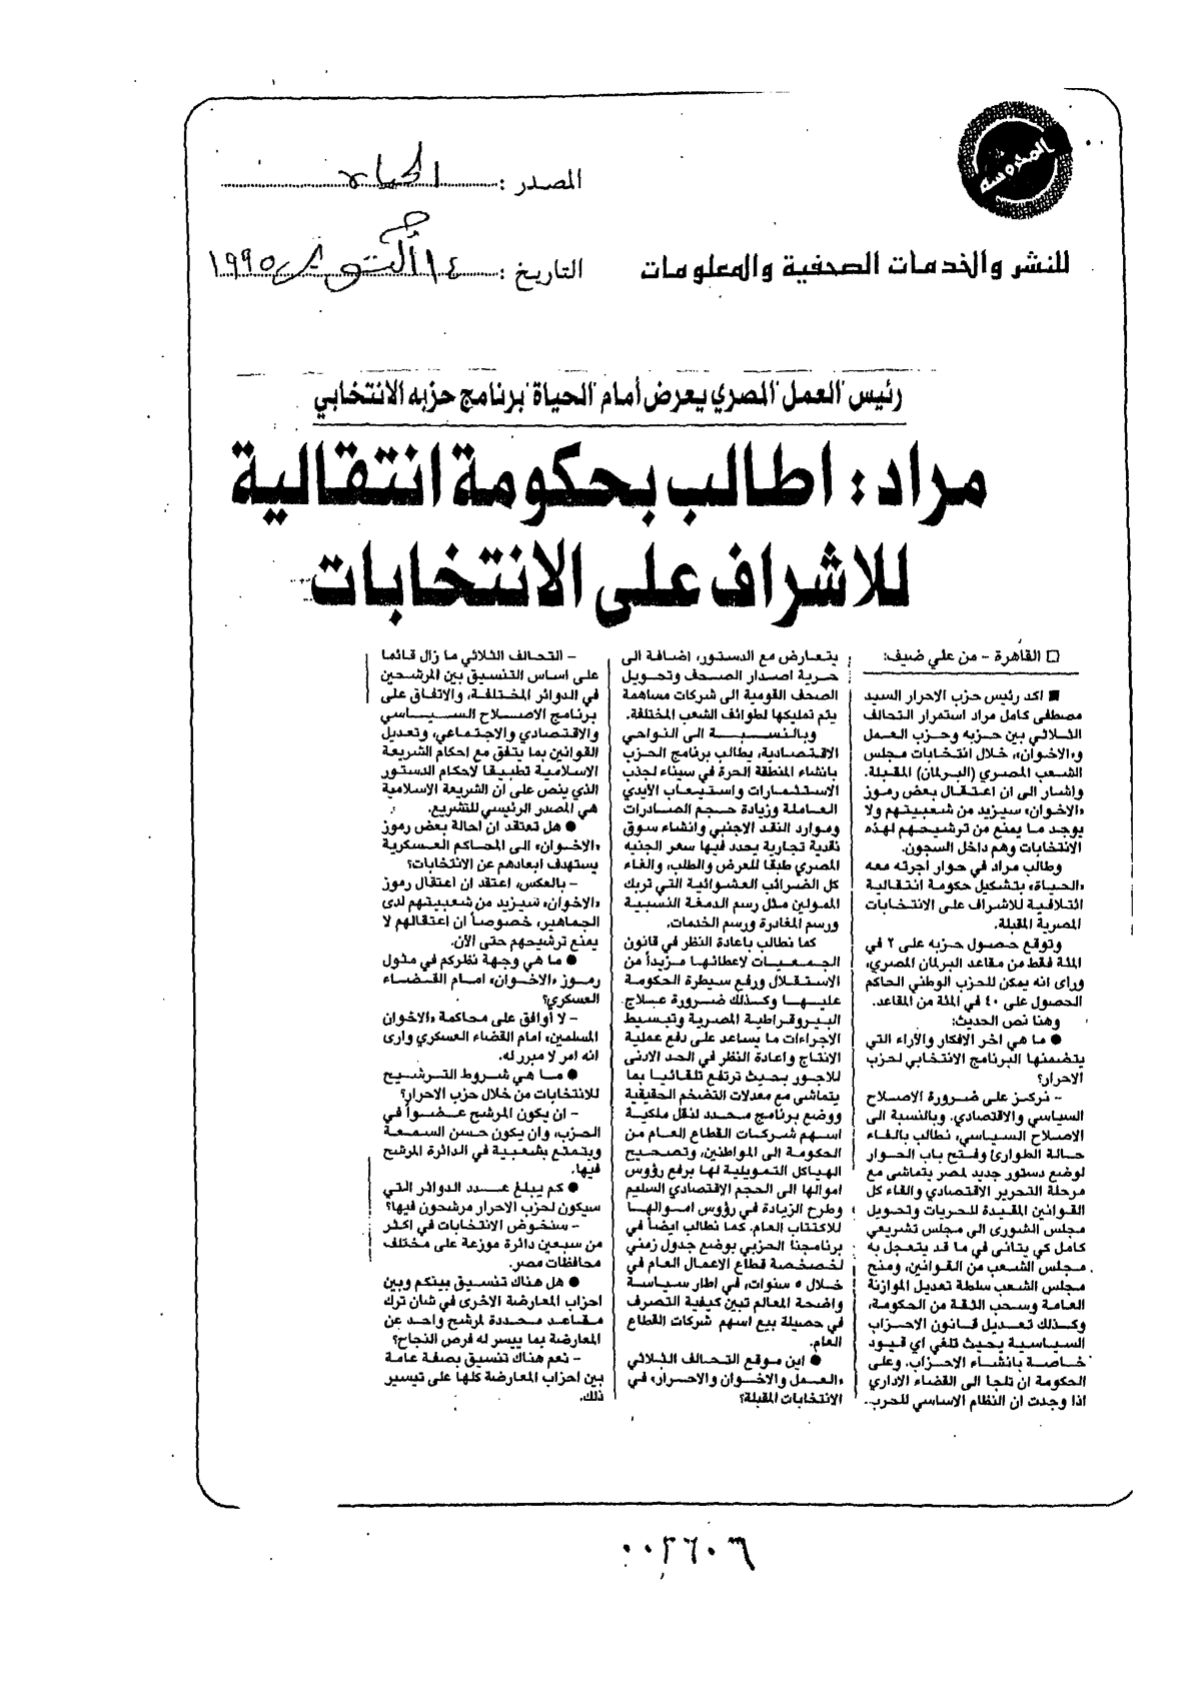 المحروسة
المصدر : الحياة
للنشر والخدمات الصحفية والمعلومات
التاريخ : ١٤ أكتوبر ١٩٩٥
رئيس "العمل" المصري يعرض أمام "الحياة" برنامج حزبه الانتخابي
مراد : اطالب بحكومة انتقالية
للاشراف على الانتخابات
□ القاهرة - من علي ضيف:
■ اكد رئيس حزب الاحرار السيد
مصطفى كامل مراد استمرار التحالف
الثلاثي بين حزبه وحزب العمل
و«الاخوان»، خلال انتخابات مجلس
الشعب المصري (البرلمان) المقبلة.
واشار الى ان اعتقال بعض رموز
«الاخوان» سيزيد من شعبيتهم ولا
يوجد ما يمنع من ترشيحهم لهذه
الانتخابات وهم داخل السجون.
وطالب مراد في حوار اجرته معه
«الحياة» بتشكيل حكومة انتقالية
ائتلافية للاشراف على الانتخابات
المصرية المقبلة.
وتوقع حصول حزبه على ٢ في
المئة فقط من مقاعد البرلمان المصري،
وراى انه يمكن للحزب الوطني الحاكم
الحصول على ٤٠ في المئة من المقاعد.
وهنا نص الحديث:
● ما هي اخر الافكار والآراء التي
يتضمنها البرنامج الانتخابي لحزب
الاحرار؟
- نركز على ضرورة الاصلاح
السياسي والاقتصادي. وبالنسبة الى
الاصلاح السياسي، نطالب بالغاء
حالة الطوارئ وفتح باب الحوار
لوضع دستور جديد لمصر يتماشى مع
مرحلة التحرير الاقتصادي والغاء كل
القوانين المقيدة للحريات وتحويل
مجلس الشورى الى مجلس تشريعي
كامل كي يتانى في ما قد يتعجل به
مجلس الشعب من القوانين، ومنح
مجلس الشعب سلطة تعديل الموازنة
العامة وسحب الثقة من الحكومة،
وكذلك تعديل قانون الاحزاب
السياسية بحيث تلغي اي قيود
خاصة بانشاء الاحزاب. وعلى
الحكومة ان تلجا الى القضاء الاداري
اذا وجدت ان النظام الاساسي للحزب..
يتعارض مع الدستور، اضافة الى
حرية اصدار الصحف وتحويل
الصحف القومية الى شركات مساهمة
يتم تمليكها لطوائف الشعب المختلفة.
وبالنسبة الى النواحي
الاقتصادية، يطالب برنامج الحزب
بانشاء المنطقة الحرة في سيناء لجذب
الاستثمارات واستيعاب الأيدي
العاملة وزيادة حجم الصادرات
وموارد النقد الاجنبي وانشاء سوق
نقدية تجارية يحدد فيها سعر الجنيه
المصري طبقا للعرض والطلب، والغاء
كل الضرائب العشوائية التي تربك
الممولين مثل رسم الدمغة النسبية
ورسم المغادرة ورسم الخدمات.
كما نطالب باعادة النظر في قانون
الجمعيات لاعطائها مزيداً من
الاستقلال ورفع سيطرة الحكومة
عليها وكذلك ضرورة علاج
البيروقراطية المصرية وتبسيط
الاجراءات ما يساعد على دفع عملية
الانتاج واعادة النظر في الحد الادنى
للاجور بحيث ترتفع تلقائيا بما
يتماشى مع معدلات التضخم الحقيقية
ووضع برنامج محدد لنقل ملكية
اسهم شركات القطاع العام من
الحكومة الى المواطنين، وتصحيح
الهياكل التمويلية لها برفع رؤوس
اموالها الى الحجم الاقتصادي السليم
وطرح الزيادة في رؤوس اموالها
للاكتتاب العام. كما نطالب ايضاً في
برنامجنا الحزبي بوضع جدول زمني
لخصخصة قطاع الاعمال العام في
خلال ٥ سنوات، في اطار سياسة
واضحة المعالم تبين كيفية التصرف
في حصيلة بيع اسهم شركات القطاع
العام.
● اين موقع التحالف الثلاثي
«العمل والاخوان والاحرار» في
الانتخابات المقبلة؟
- التحالف الثلاثي ما زال قائما
على اساس التنسيق بين المرشحين
في الدوائر المختلفة، والاتفاق على
برنامج الاصلاح السياسي
والاقتصادي والاجتماعي، وتعديل
القوانين بما يتفق مع احكام الشريعة
الاسلامية تطبيقا لاحكام الدستور
الذي ينص على ان الشريعة الاسلامية
هي المصدر الرئيسي للتشريع.
● هل تعتقد ان احالة بعض رموز
«الاخوان» الى المحاكم العسكرية
يستهدف ابعادهم عن الانتخابات؟
- بالعكس، اعتقد ان اعتقال رموز
«الاخوان» سيزيد من شعبيتهم لدى
الجماهير، خصوصاً ان اعتقالهم لا
يمنع ترشيحهم حتى الآن.
● ما هي وجهة نظركم في مثول
رموز «الاخوان» امام القضاء
العسكري؟
- لا أوافق على محاكمة «الاخوان
المسلمين» امام القضاء العسكري وارى
انه امر لا مبرر له.
● ما هي شروط الترشيح
للانتخابات من خلال حزب الاحرار؟
- ان يكون المرشح عضواً في
الحزب، وان يكون حسن السمعة
ويتمتع بشعبية في الدائرة المرشح
فيها.
● كم يبلغ عدد الدوائر التي
سيكون لحزب الاحرار مرشحون فيها؟
- سنخوض الانتخابات في اكثر
من سبعين دائرة موزعة على مختلف
محافظات مصر.
● هل هناك تنسيق بينكم وبين
احزاب المعارضة الاخرى في شان ترك
مقاعد محددة لمرشح واحد عن
المعارضة بما ييسر له فرص النجاح؟
- نعم هناك تنسيق بصفة عامة
بين احزاب المعارضة كلها على تيسير
ذلك.
٠٠٢٦٠٦